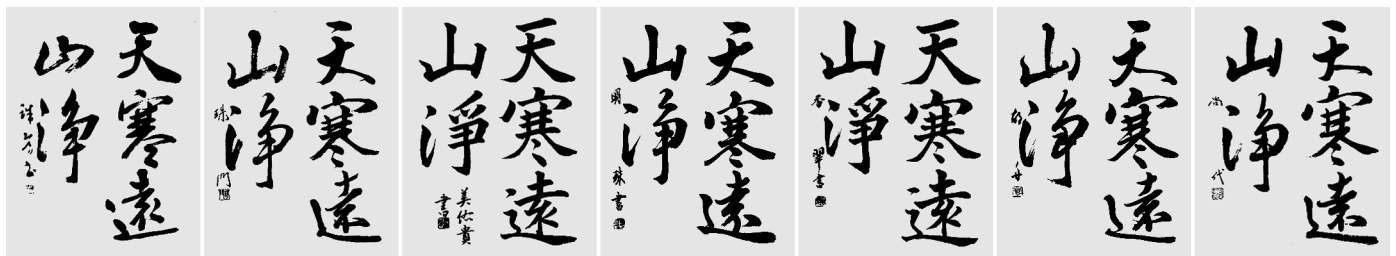 天寒遠
山淨
天寒遠
山淨
天寒遠
山淨
美佐貴書
天寒遠
山淨
明珠書
天寒遠
山淨
杏翠書
天寒遠
山淨
天寒遠
山淨
尚代